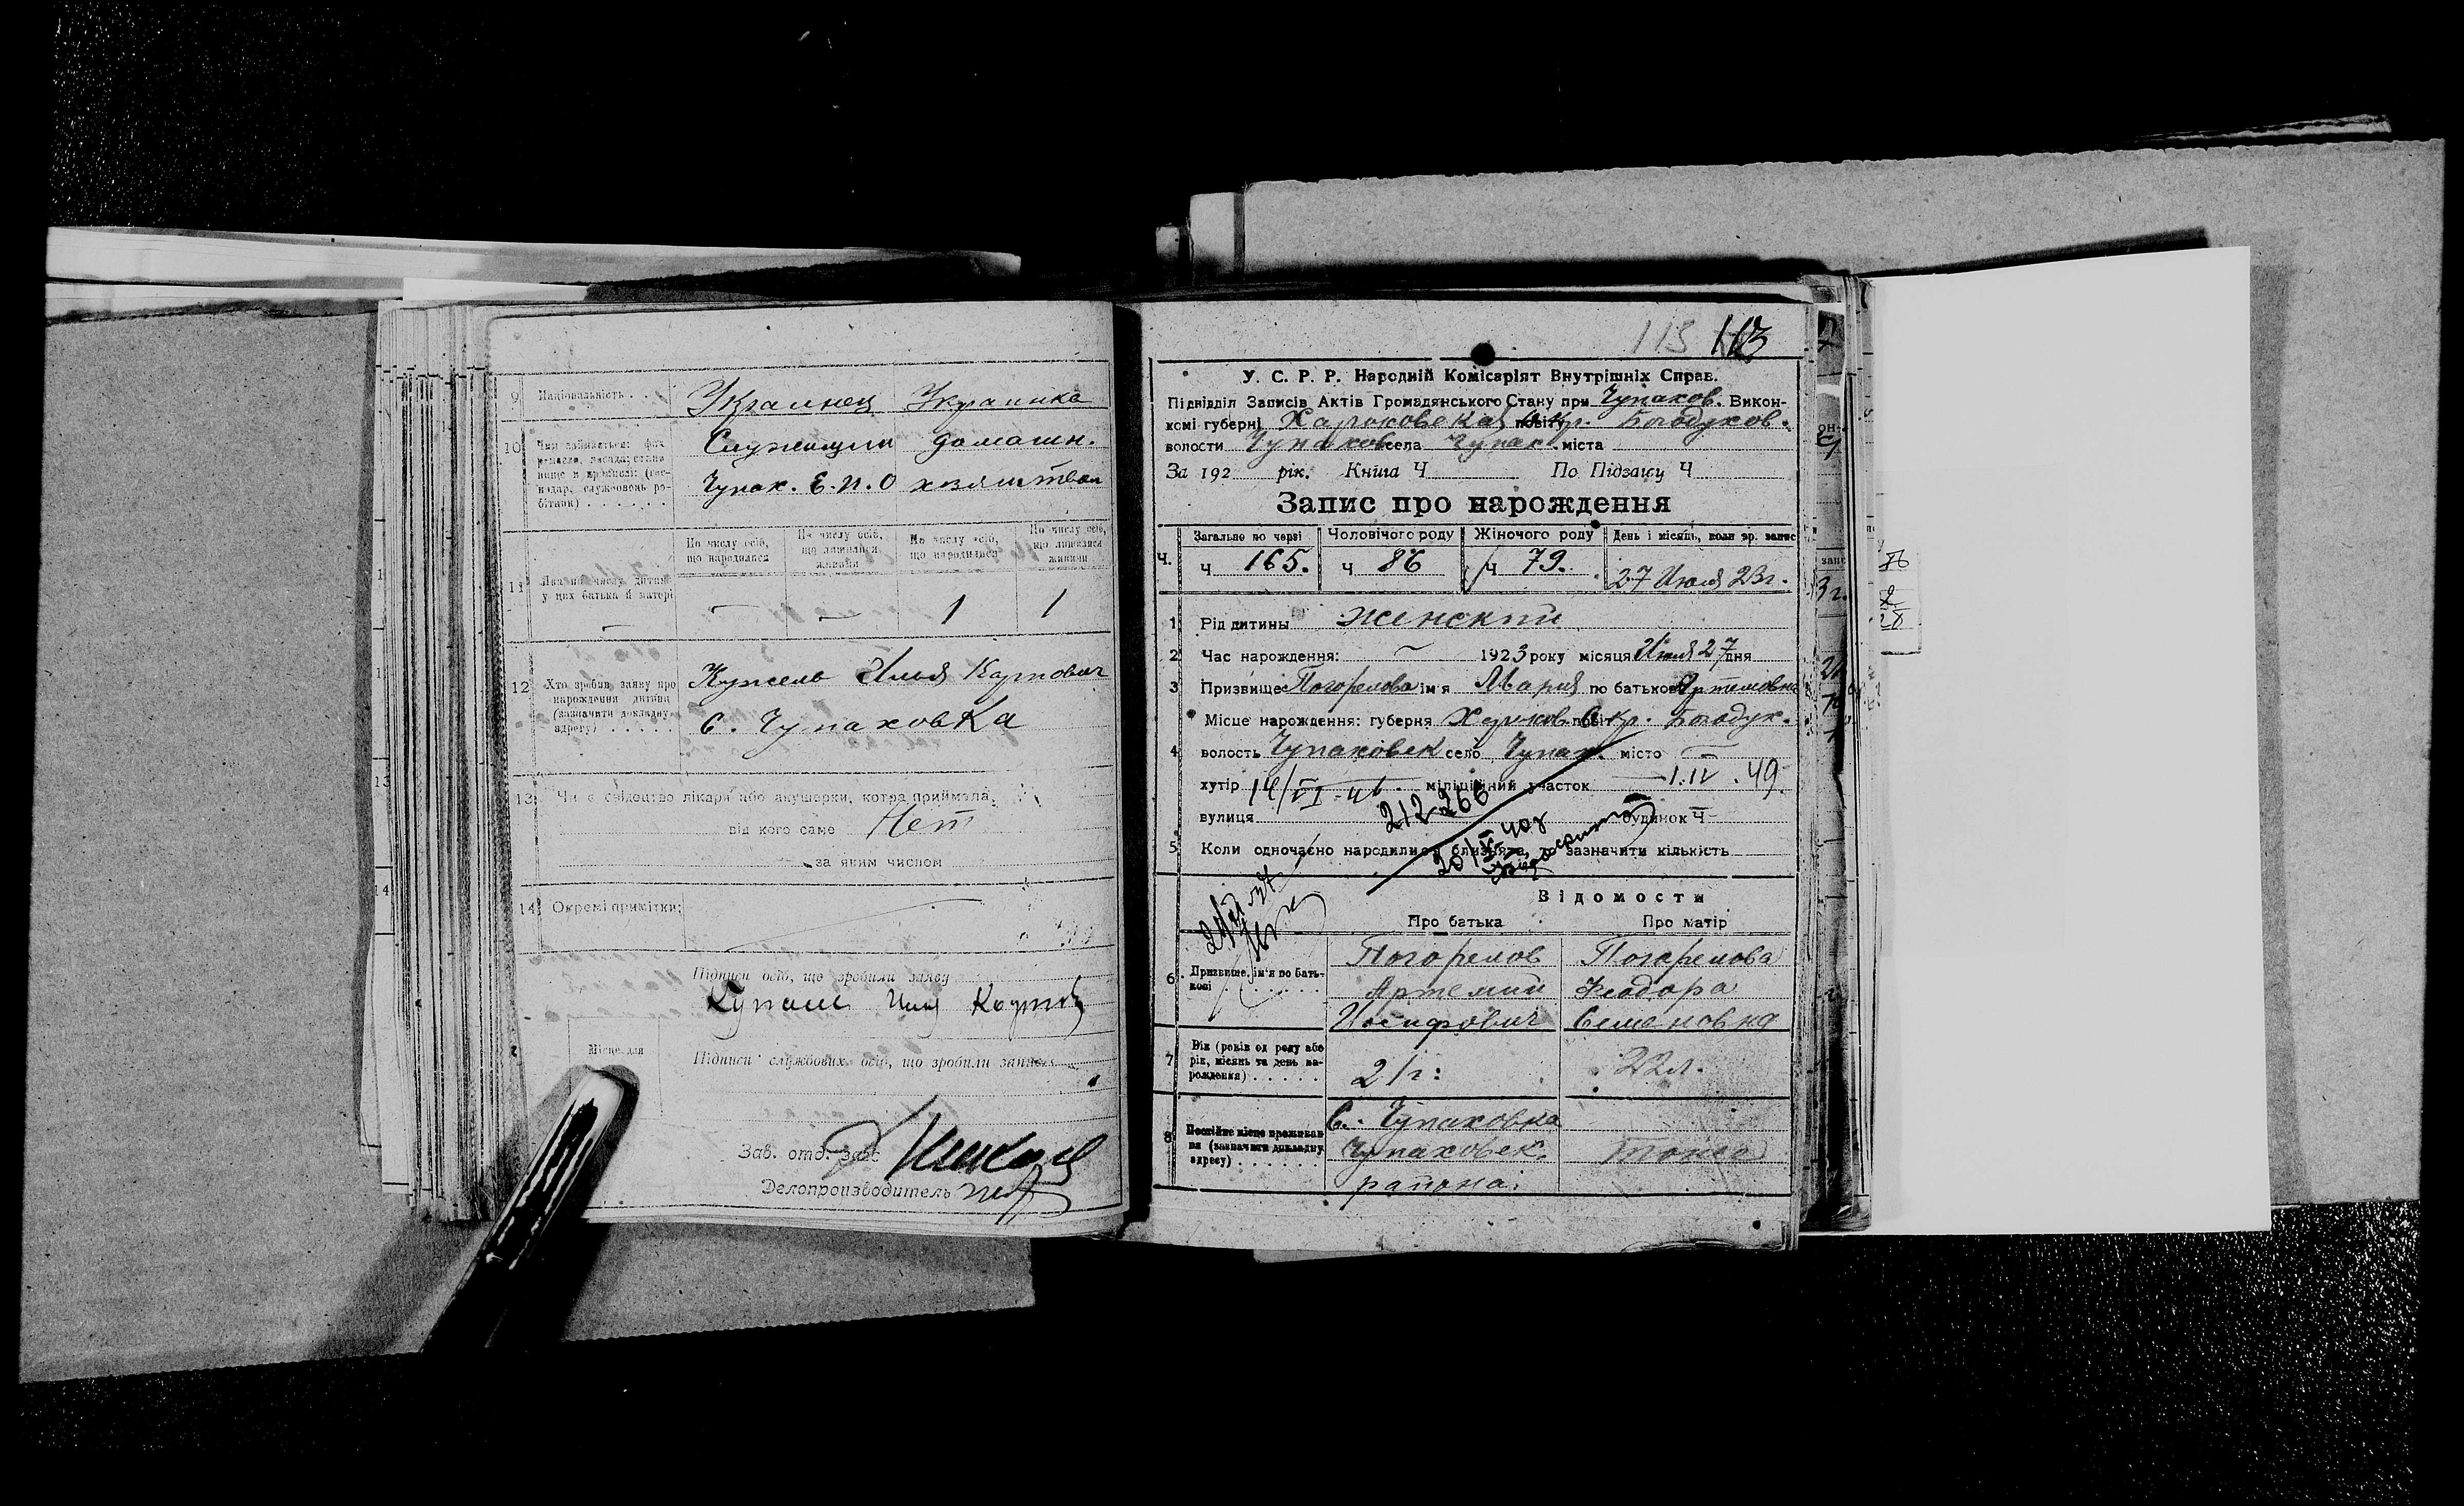 9 Національність . . Украинец Украинка
10 Чим займається: фах, Служащий домашн.
Чупах. Е.П.О хозяйством
По числу осіб, що народилися
По числу осіб, що лишилися живими
По числу осіб, що народилися
По числу осіб, що лишилися живими
11 Яка по числу дитина у цих батька й матері
1 1
12 Хто зробив заяву про нарождення дитини (зазначити докладну адресу) . . . . .
Илья Карпович
С. Чупаховка
13 Чи є свідоцтво лікаря або акушерки, котра приймала,
від кого саме Нет
за яким числом
14 Окремі примітки:
Підписи осіб, що зробили заяву
Місце для
Підписи службових осіб, що зробили запис
Зав. отд. Загс
Делопроизводитель
113 113
У. С. Р. Р. Народній Комісаріят Внутрішніх Справ.
Підвідділ Записів Актів Громадянського Стану при Чупахов. Викон-
комі губерні Харьковская повіту Окр. Богодухов.
волости Чупахов села Чупах. міста
За 192 рік. Книга Ч По Підзагсу Ч
Запис про нарождення
Загальне по черзі Чоловічого роду Жіночого роду День і місяць, коли зр. запис
Ч. Ч 165. Ч 86 Ч 79. 27 Июля 23г.
1 Рід дитины женский
2 Час нарождення: 1923 року місяця Июля 27 дня
3 Призвище Погорелова ім'я Мария по батькові Артемовна
Місце нарождення: губерня Харьков. повіт Окр. Богодух.
4 волость Чупаховск село Чупах. місто
хутір 14/VI-46 міліційний участок 1.IV.49.
вулиця 212266 будинок Ч
5 Коли одночасно народилися близнята, то зазначити кількість
Відомости
Про батька Про матір
6 Призвище, ім'я по батькові
Погорелов Погорелова
Артемий Феодора
Иосифович Семеновна
7 Вік (років од роду або рік, місяць та день народження) . . . . . 21г: 22л.
8 Постійне місце проживання (зазначити докладну адресу) . . . . . .
С. Чупаховка
Чупаховск. Тоже
района.